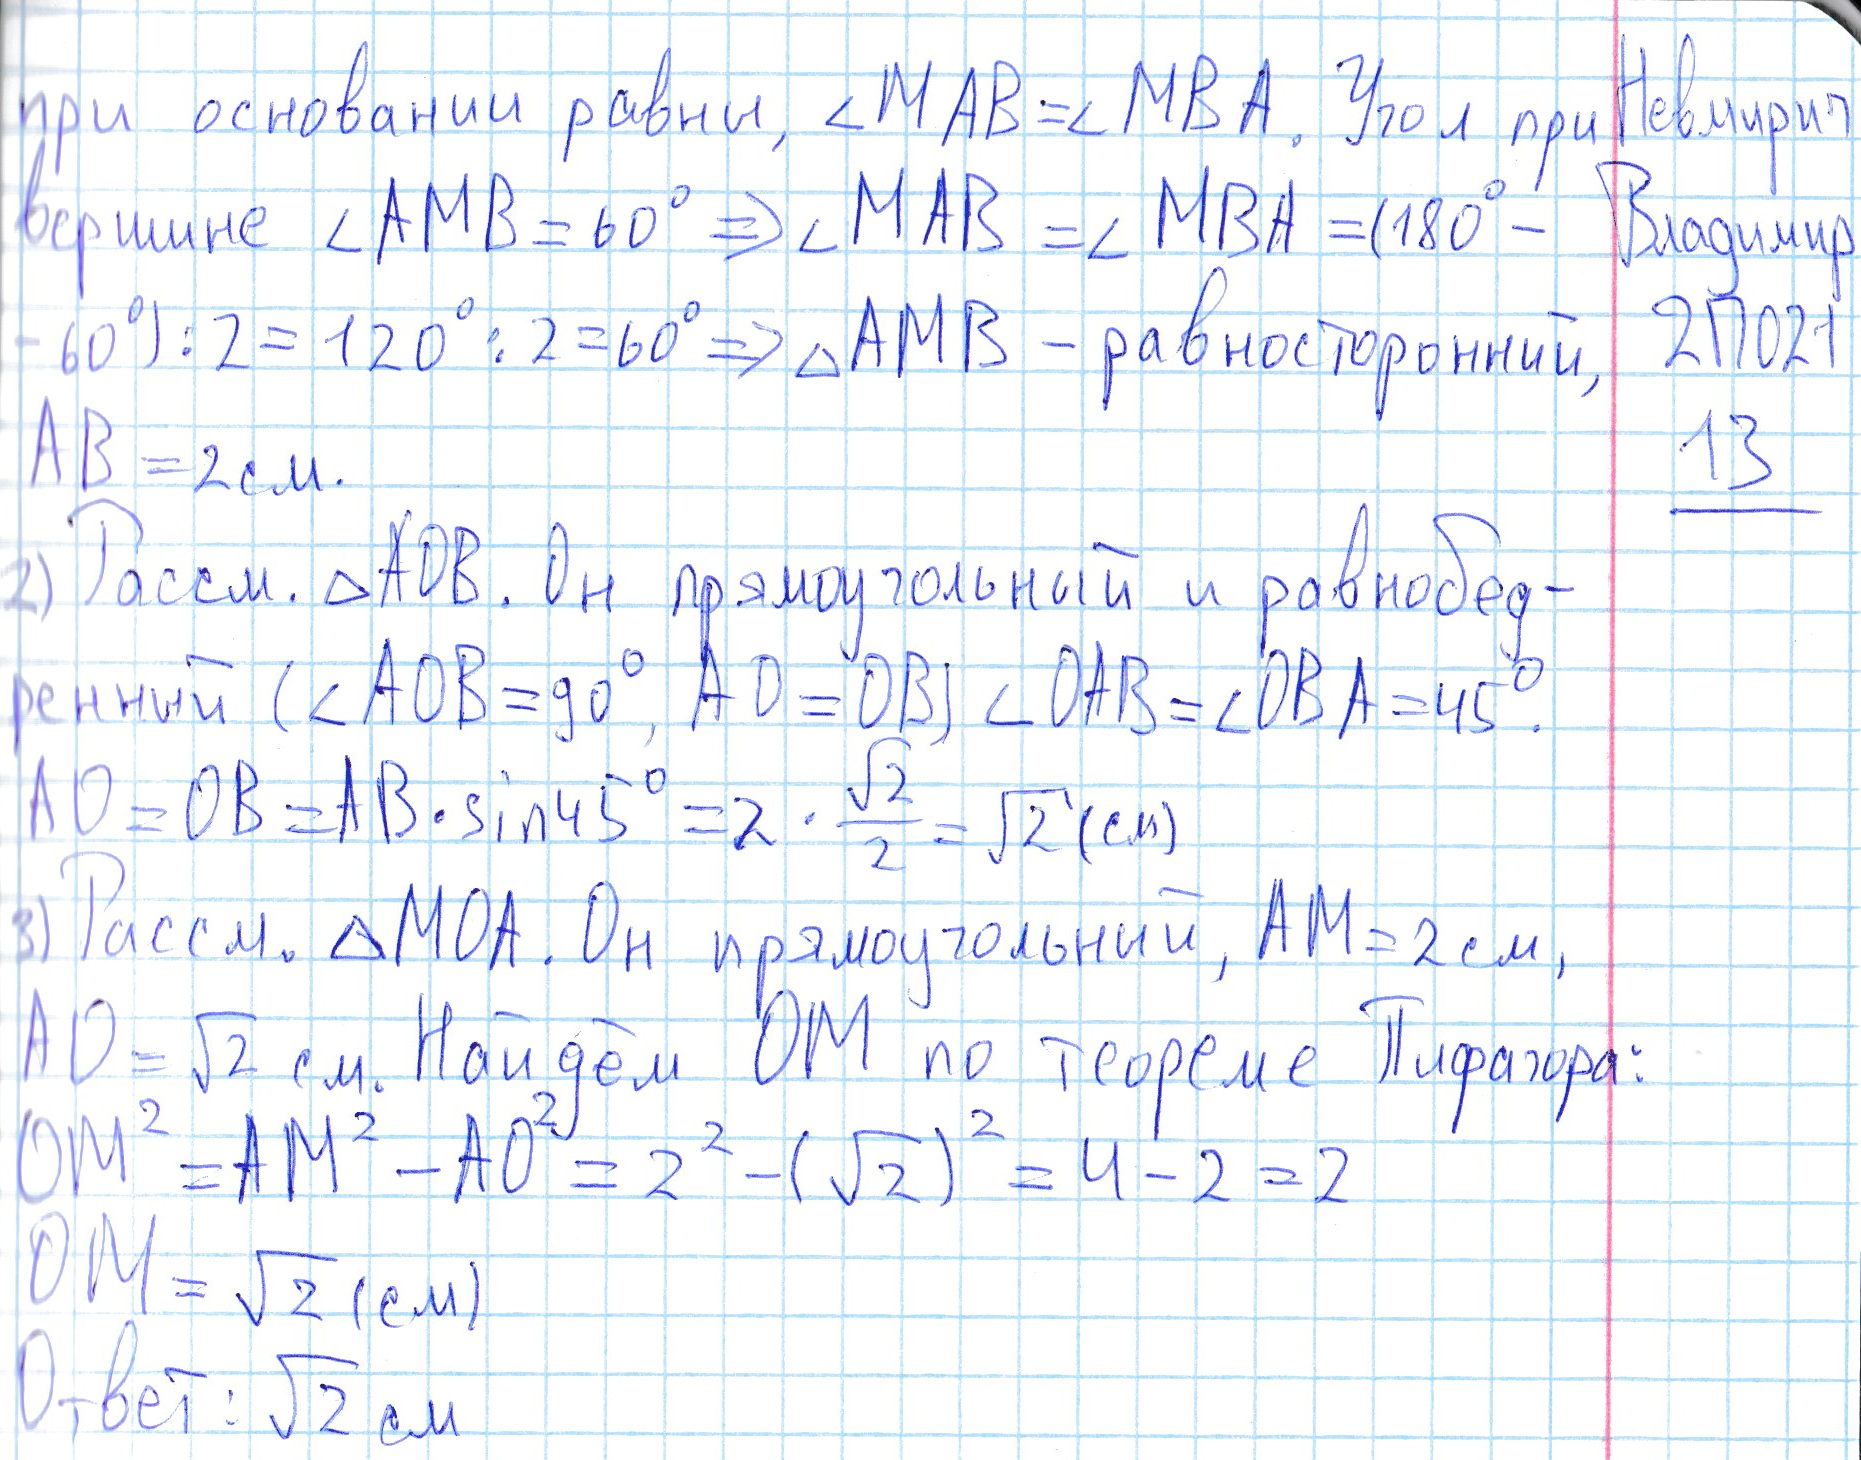 при основании равны, ∠MAB=∠MBA. Угол при
вершине ∠AMB=60°⇒∠MAB=∠MBA=(180°-
-60°):2=120°:2=60°⇒△AMB - равносторонний,
AB=2см.
2) Рассм. △AOB. Он прямоугольный и равнобед-
ренный (∠AOB=90°, AO=OB) ∠OAB=∠OBA=45°.
AO=OB=AB·sin45°=2·√2/2=√2(см)
3) Рассм. △MOA. Он прямоугольный, AM=2см,
AO=√2 см. Найдём OM по теореме Пифагора:
OM²=AM²-AO²=2²-(√2)²=4-2=2
OM=√2(см)
Ответ: √2 см
Невмирич
Владимир
2П021
13